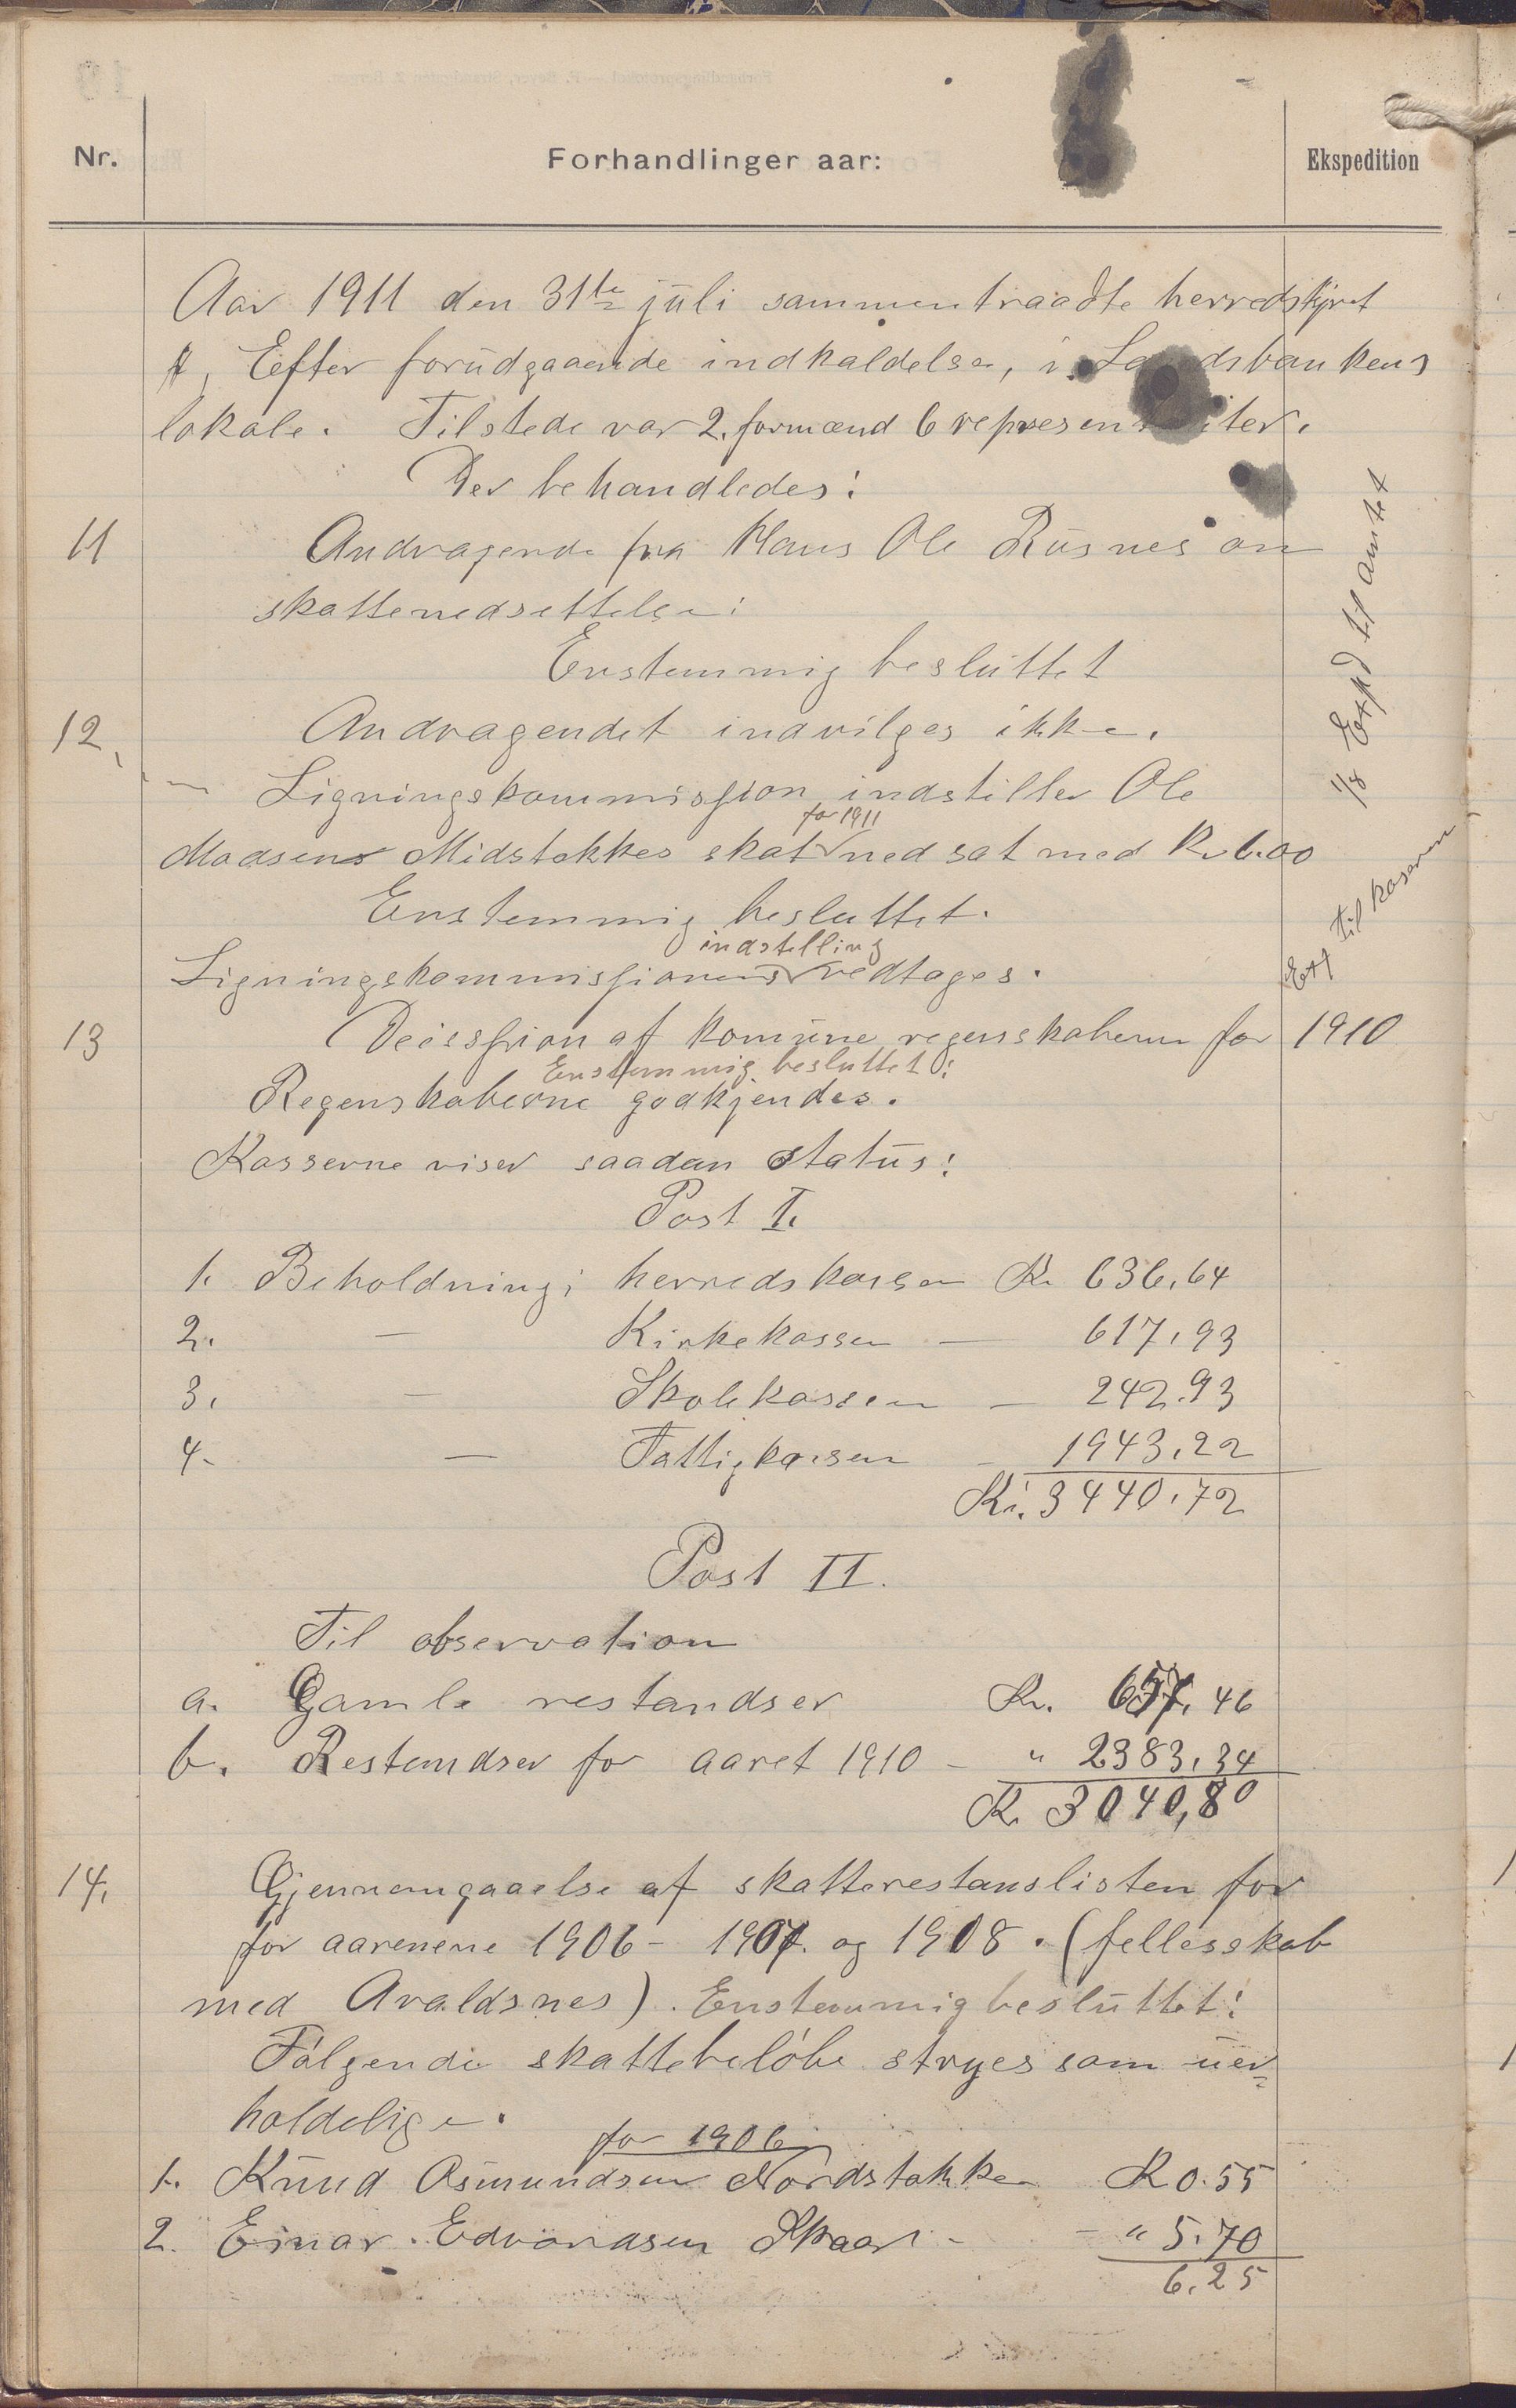 Nr.
Forhandlinger aar:
Ekspedition
Aar 1911 den 31te juli sammentraadte herredstyret
Efter forudgaaende indkaldelse, i
lokale. Tilstede var 2. formænd 6
Der behandledes:
11 Andragende fra Hans Ole Rusnes om
skattenedsettelse:
Enstemmig besluttet
Andragendet indvilges ikke.
1/8 Exp'd til amtet
12. Ligningskommission indstiller Ole
for 1911
Madsens Midstokkes skat nedsat med Kr 6.00
Enstemmig besluttet.
indstilling
Ligningskommissionens vedtages.
Exp til kaserer
13 Deissjion af komune regenskaberne for 1910
Enstemmig besluttet:
Regenskaberne godkjendes.
Kasserne viser saadan status:
Post I.
1. Beholdning i herredskassen Kr 636,64
2. — Kirkekassen — 617,93
3. — Skolekassen — 242.93
4. — Fattigkassen — 1943,22
Kr. 3440,72
Post II.
Til observation
a. Gamle restandser Kr. 657,46
b. Restandser for aaret 1910 - " 2383,34
Kr. 3040,80
14. Gjennemgaaelse af skatterestanslisten for
for aarenene 1906 - 1907. og 1908. (fellesskab
med Avaldsnes). Enstemmig besluttet:
Følgende skattebeløbe stryes som uer-
holdelige.
for 1906
1. Knud Asmundsen Nordstokke Kr 0.55
2. Einar Edvardsen Skaar - - " 5.70
6.25